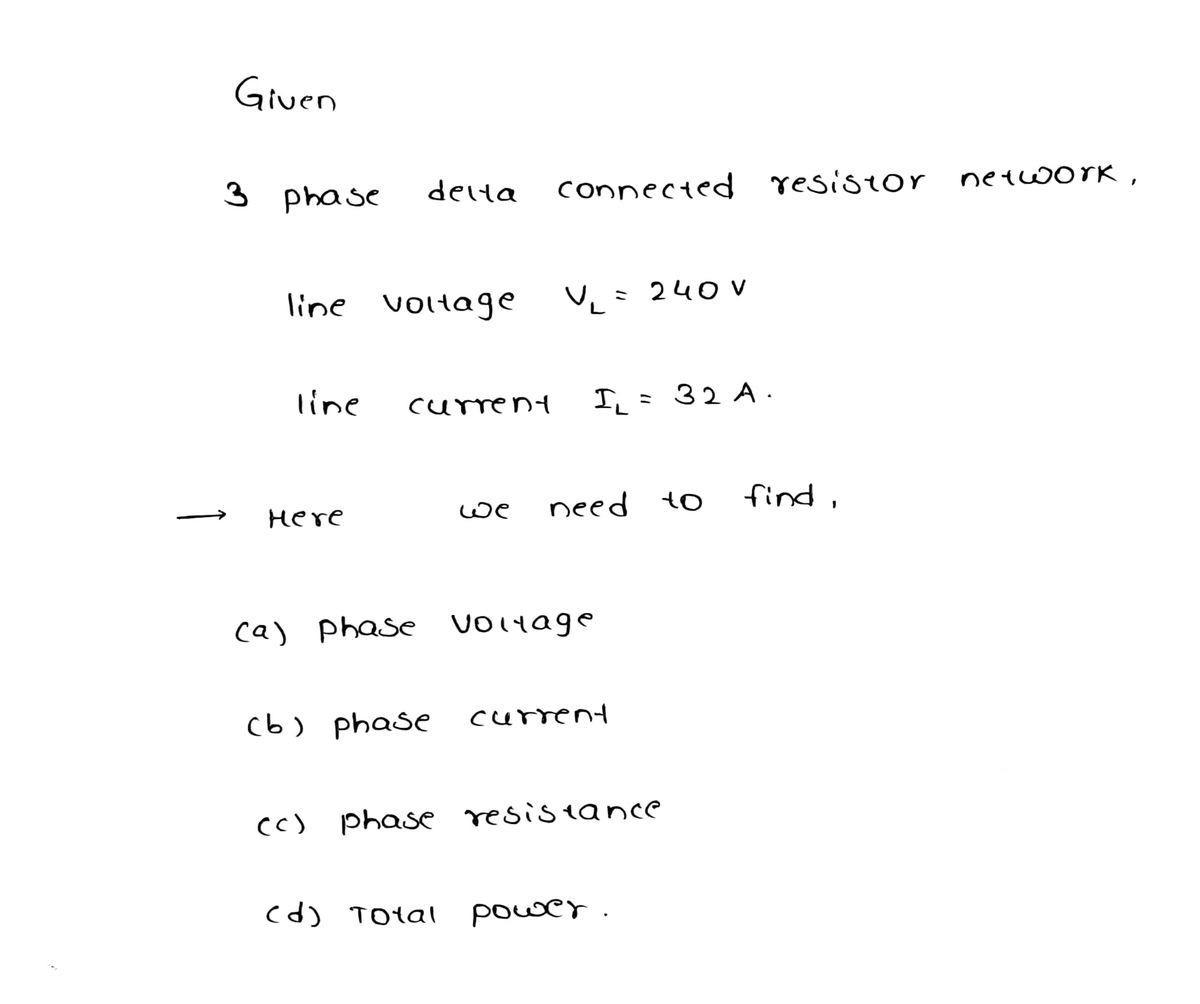 Given
3 phase delta connected resistor network,
line voltage V_L = 240 V
line current I_L = 32 A.
→ Here we need to find,
(a) phase voltage
(b) phase current
(c) phase resistance
(d) Total power.